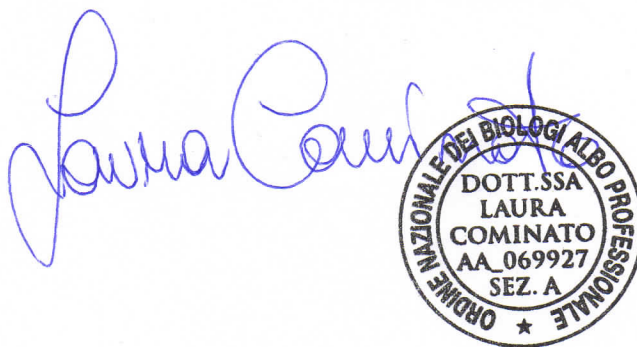 Laura Cominato
ORDINE NAZIONALE DEI BIOLOGI ALBO PROFESSIONALE
DOTT.SSA
LAURA
COMINATO
AA_069927
SEZ. A
★